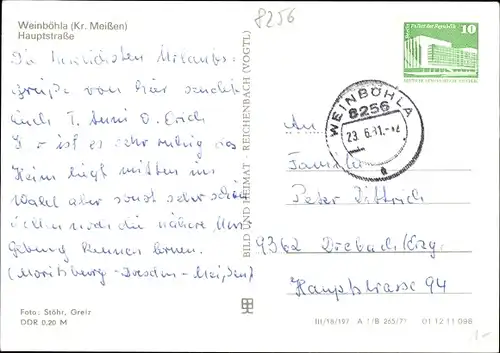 Weinböhla (Kr. Meißen)
Hauptstraße
8256
Die herzlichsten Urlaubs-
grüße von hier sendet
Euch T. Anni u. Erich
ist es sehr ruhig das
Heim liegt mitten im
Wald aber sonst sehr schön
wollen noch die nähere Um
gebung kennen lernen.
(Moritzburg-Dresden-Meißen)
Foto: Stöhr, Greiz
DDR 0,20 M
BILD UND HEIMAT · REICHENBACH (VOGTL)
10
WEINBÖHLA
8256
23.6.81.-12
a
An
Familie
Peter Dittrich
9362 Drebach/Erzg.
Hauptstrasse 94
III/18/197 A 1/B 265/71 01 12 11 098